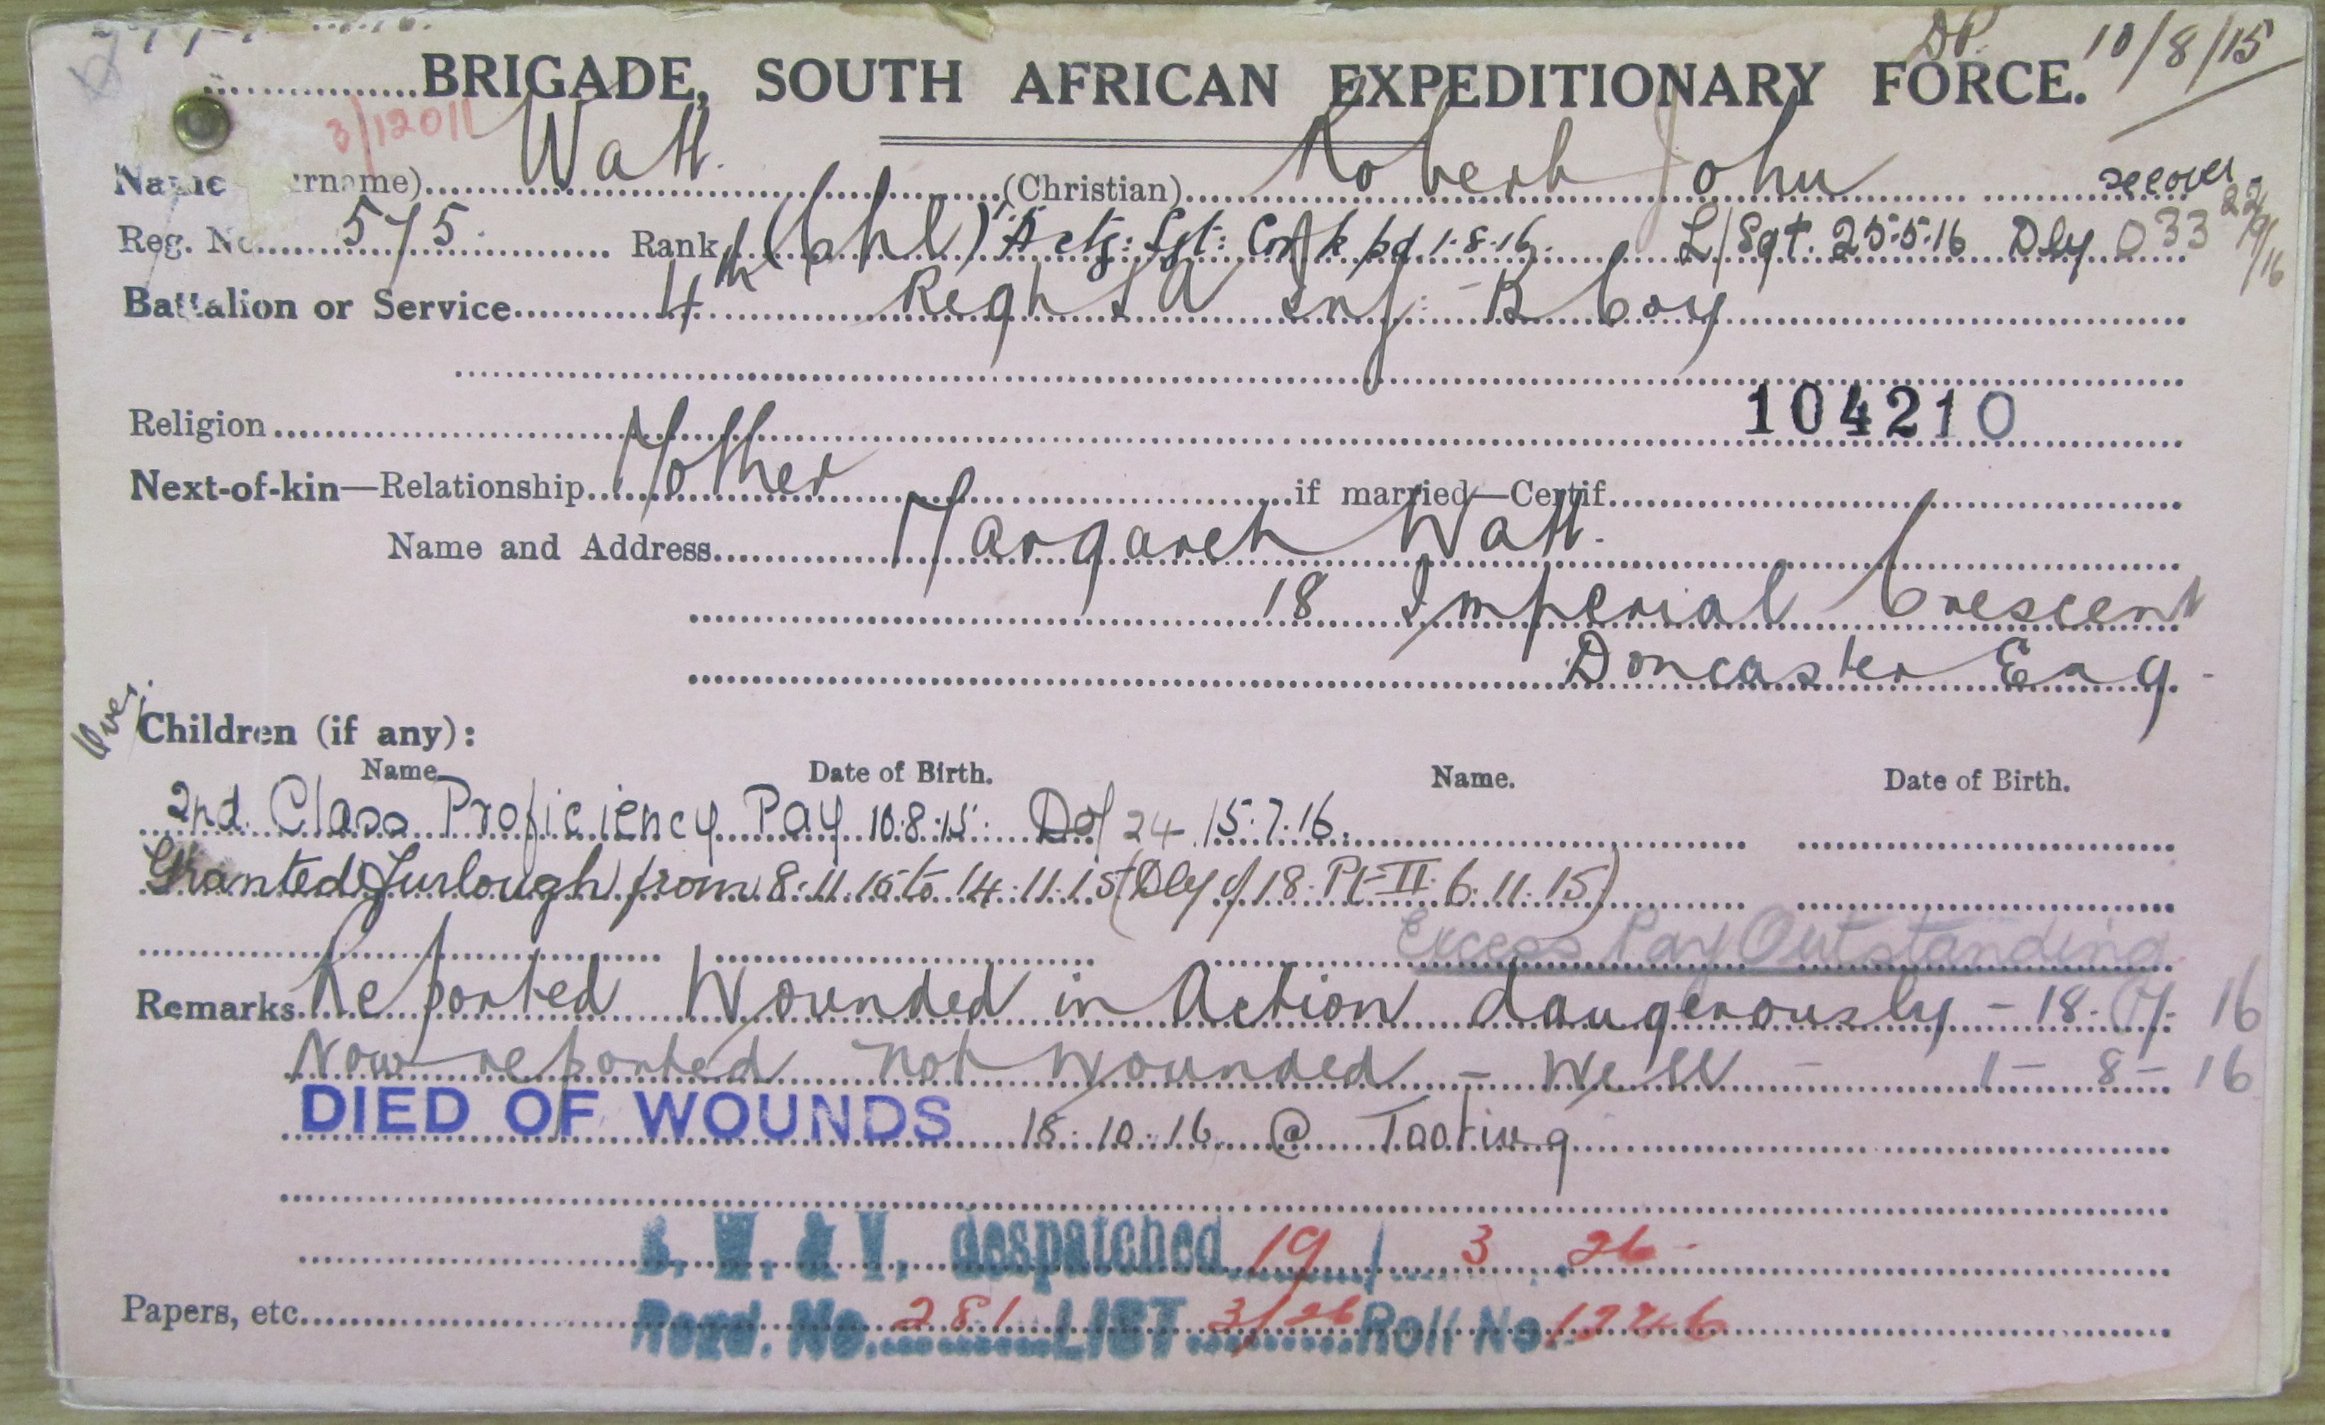 DP. 10/8/15
BRIGADE, SOUTH AFRICAN EXPEDITIONARY FORCE.
3/12011
Name (Surname) Watt. (Christian) Robert John see over
Reg. No. 575. Rank (Cpl) Actg: Sgt: Cpl 1.8.16. L/Sgt. 25.5.16 Dly O 33 22/9/16
Battalion or Service 4th Regt S A Inf: - B Coy
104210
Religion
Next-of-kin—Relationship Mother if married—Certif
Name and Address Margaret Watt.
18 Imperial Crescent
Doncaster Eng.
Over
Children (if any):
Name Date of Birth. Name. Date of Birth.
2nd Class Proficiency Pay 10.8.15. Do/ 24 15.7.16.
Granted Furlough from 8.11.15 to 14.11.15 (Dly o/ 18. Pt II. 6.11.15)
Excess Pay Outstanding
Remarks Reported Wounded in Action dangerously - 18. 7. 16
Now reported not wounded - Well - 1 - 8 - 16
DIED OF WOUNDS 18.10.16 @ Tooting
despatched 19 / 3 . 26
Papers, etc. Regd. No. 281 LIST 3/26 Roll No 1246